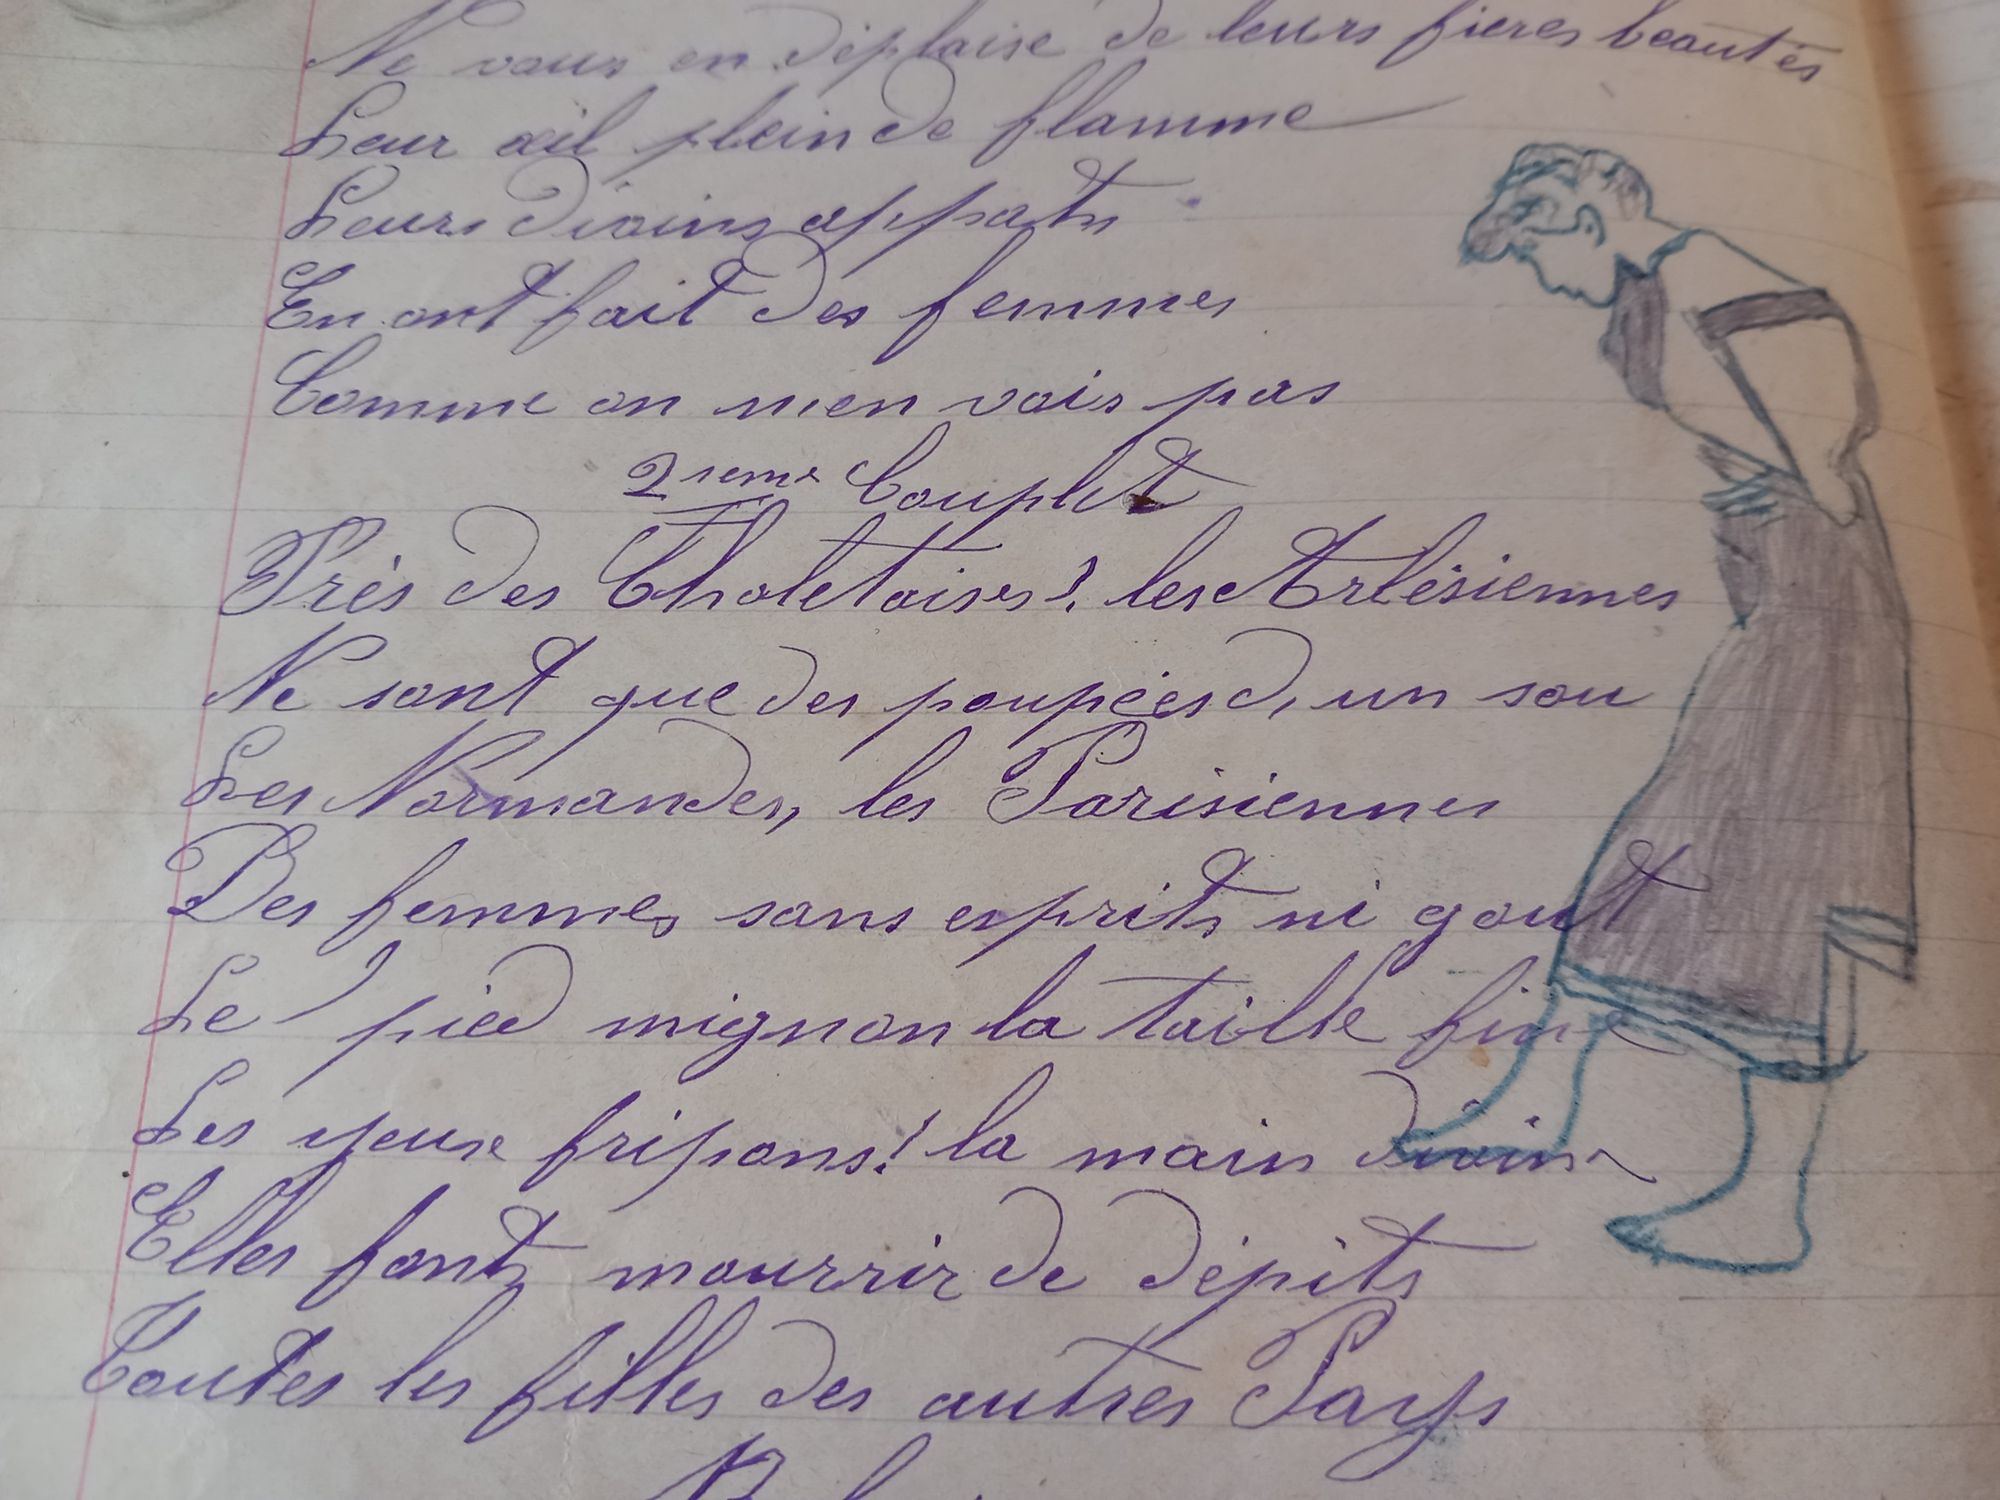 Ne vous en déplaise de leurs fières beautés
Leur œil plein de flamme
Leurs divins appats
En ont fait des femmes
Comme on n'en vois pas
2ieme Couplet
Près des Choletaises! les Arlésiennes
Ne sont que des poupées d, un sou
Les Normandes, les Parisiennes
Des femmes sans esprits ni gout
Le pied mignon la taille fine
Les yeux fripons! la main divine
Elles font mourrir de dépits
Toutes les filles des autres Pays